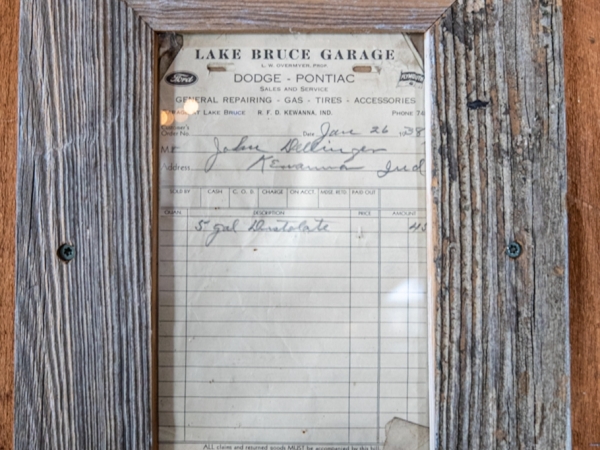 LAKE BRUCE GARAGE
L. W. OVERMYER, PROP.
Ford
DODGE - PONTIAC
SALES AND SERVICE
GENERAL REPAIRING - GAS - TIRES - ACCESSORIES
LAKE BRUCE R. F. D. KEWANNA, IND. PHONE 76
Customer's
Order No. Date Jan 26 1938
M John Dillinger
Address Kewanna Ind
SOLD BY CASH C. O. D. CHARGE ON ACCT. MDSE. RETD. PAID OUT
QUAN. DESCRIPTION PRICE AMOUNT
5 gal Distolate 45
ALL claims and returned goods MUST be accompanied by this bill